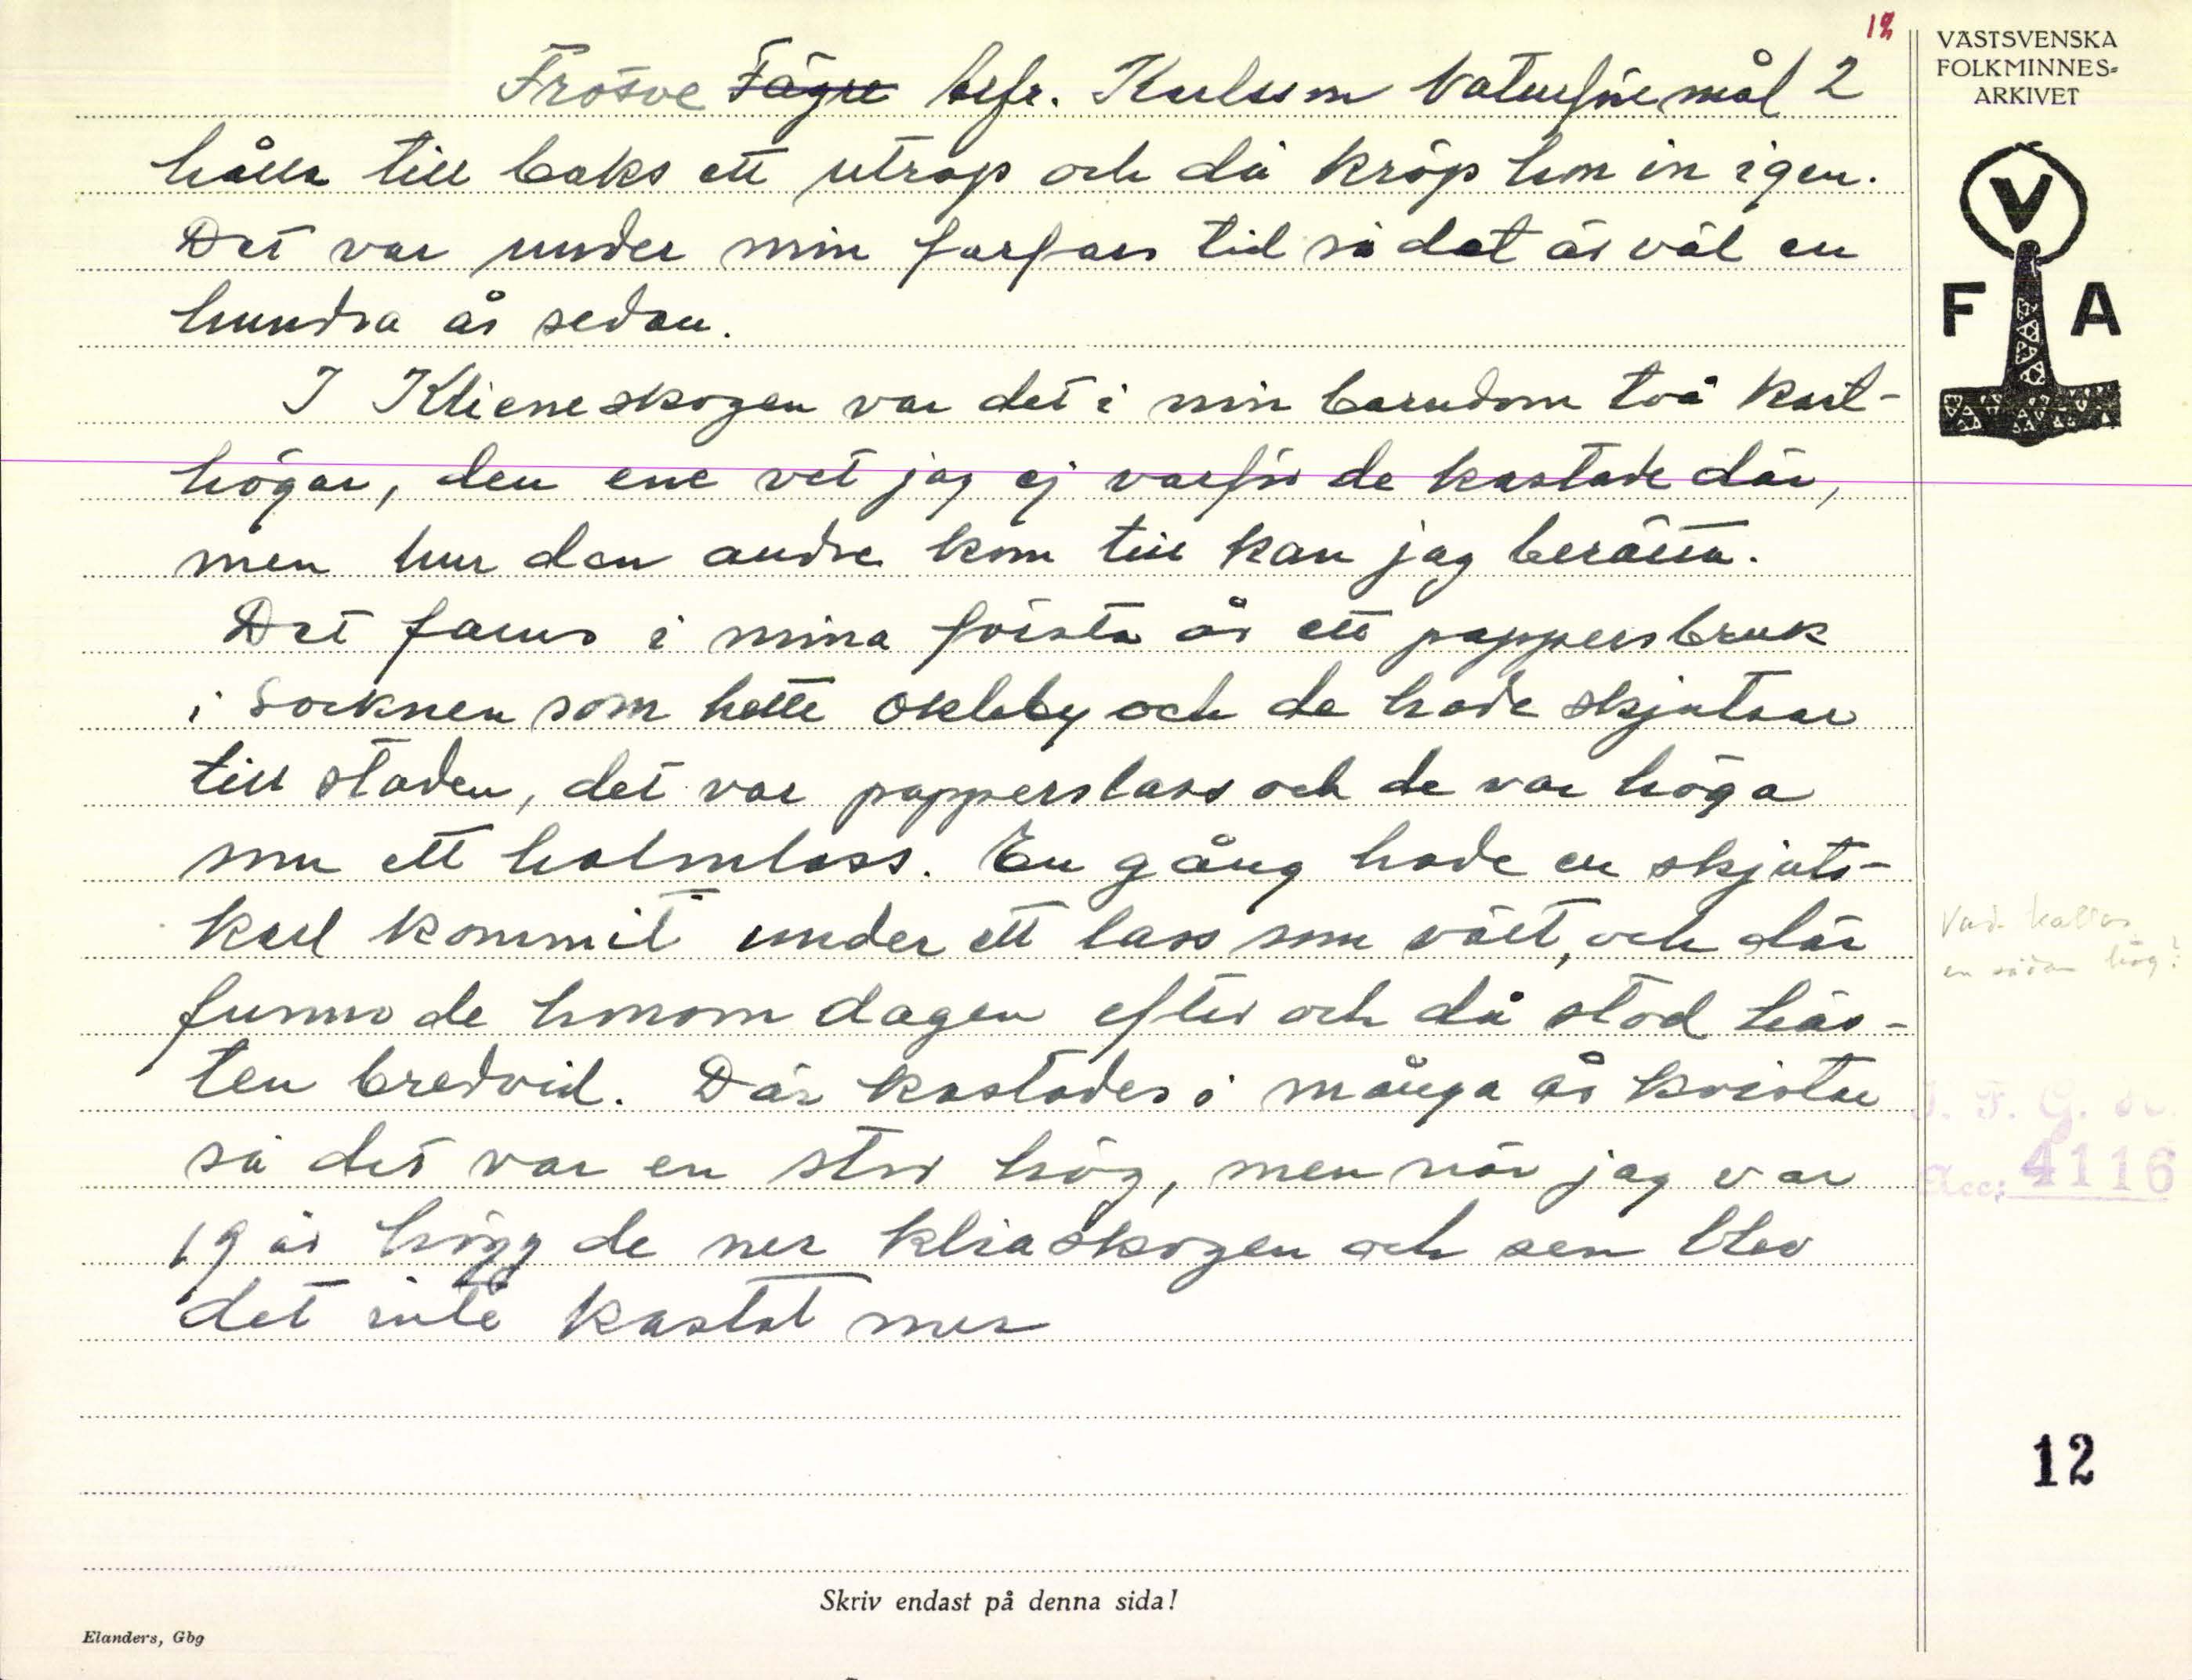 12
Frösve Fägre befr. Karlsson Naturföremål 2
hålla till baks ett utrop och då kröp hon in igen.
Det var under min farfars tid så det är väl en
hundra år sedan.
I Klieneskogen var det i min barndom två kast-
högar, den ene vet jag ej varför de kastade där,
men hur den andre kom till kan jag berätta.
Det fanns i mina första år ett pappersbruk
i Socknen som hette Okleby och de hade skjutsar
till staden, det var papperslass och de var höga
som ett halmlass. En gång hade en skjuts-
karl kommit under ett lass som vält, och där
funno de honom dagen efter och då stod häs-
ten bredvid. Där kastades i många år kvistar
så det var en stor hög, men när jag var
19 år högg de ner kliaskogen och sen blev
det inte kastat mer
VÄSTSVENSKA
FOLKMINNES-
ARKIVET
V
F A
Vad kallas
en sådan hög?
Acc: 4116
12
Skriv endast på denna sida!
Elanders, Gbg